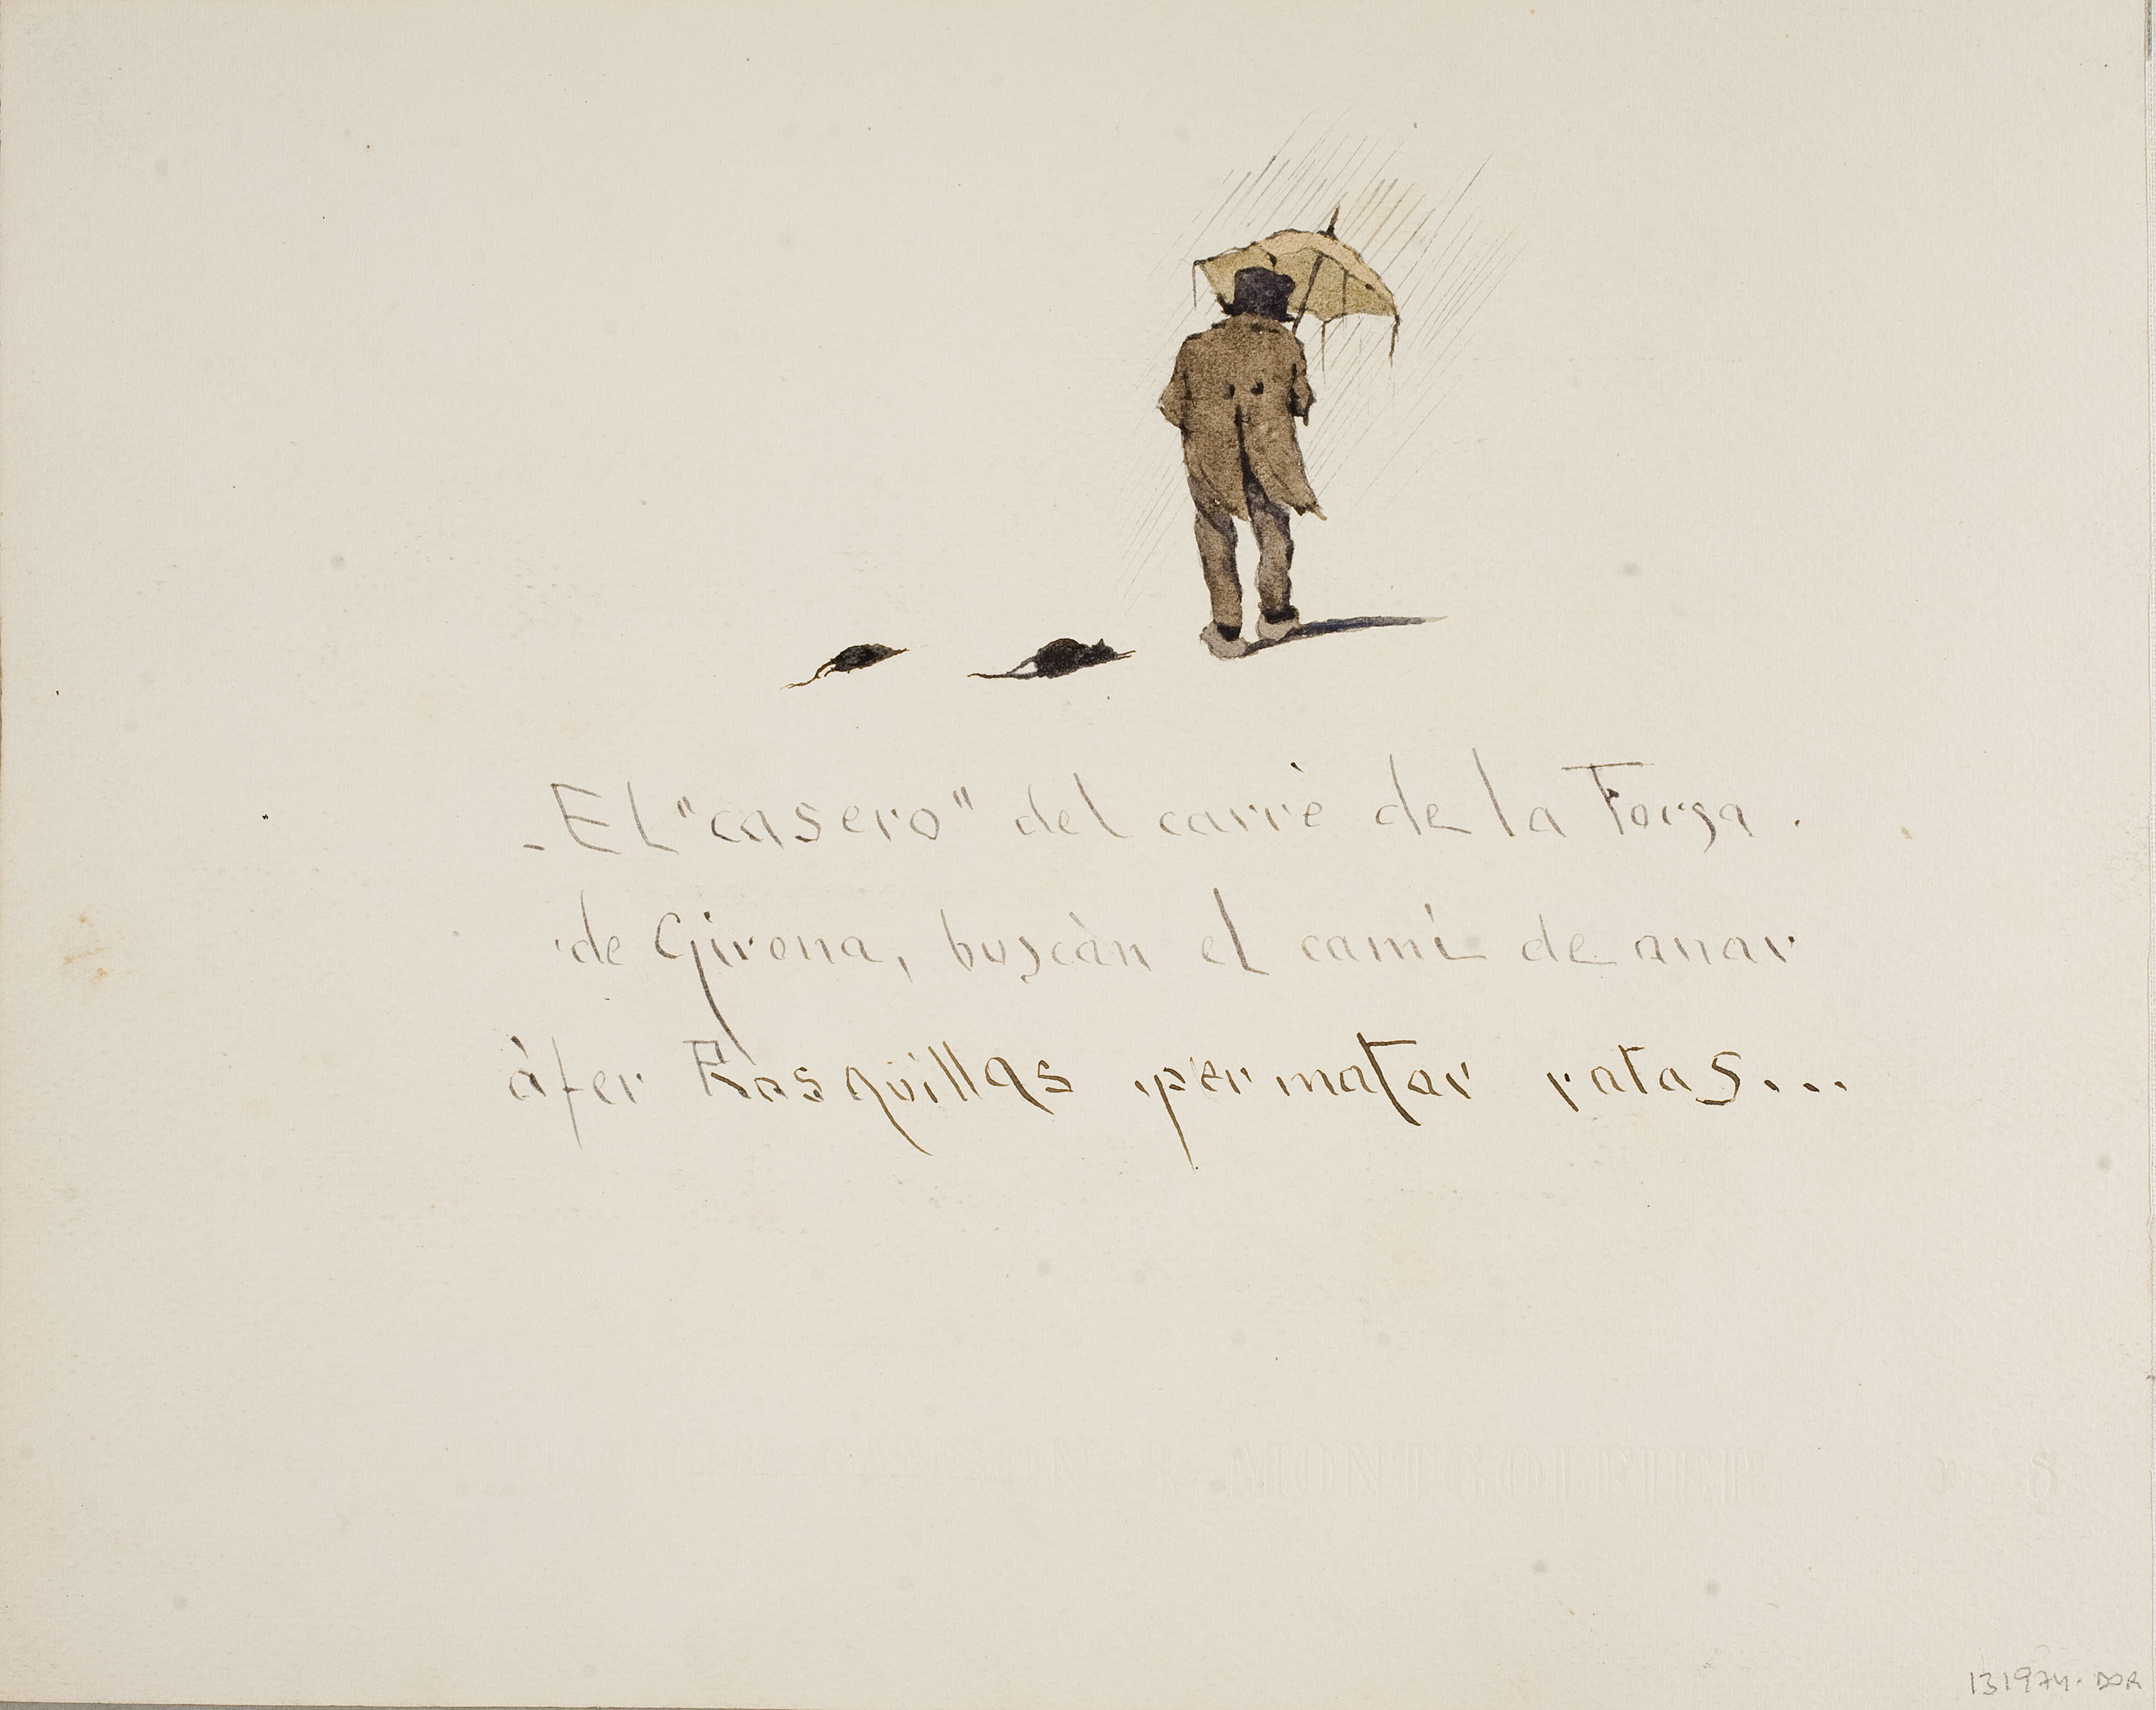 - El "casero" del carrè de la Forsa.
de Girona, buscàn el camí de anar
à fer Rosquillas per matar ratas...
MONTGOLFIER
131974. DOR